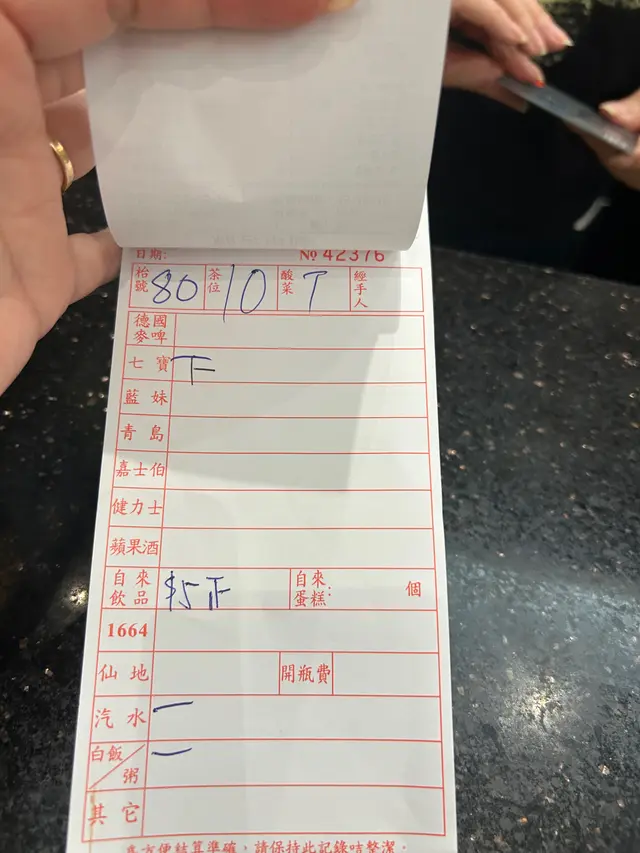 日期: № 42376
枱號 80 茶位 10 酸菜 T 經手人
德國麥啤
七寶 下
藍妹
青島
嘉士伯
健力士
蘋果酒
自來飲品 $5 自來蛋糕: 個
1664
仙地 開瓶費
汽水 一
白飯/粥 一
其它
為方便結算準確，請保持此記錄咭整潔。